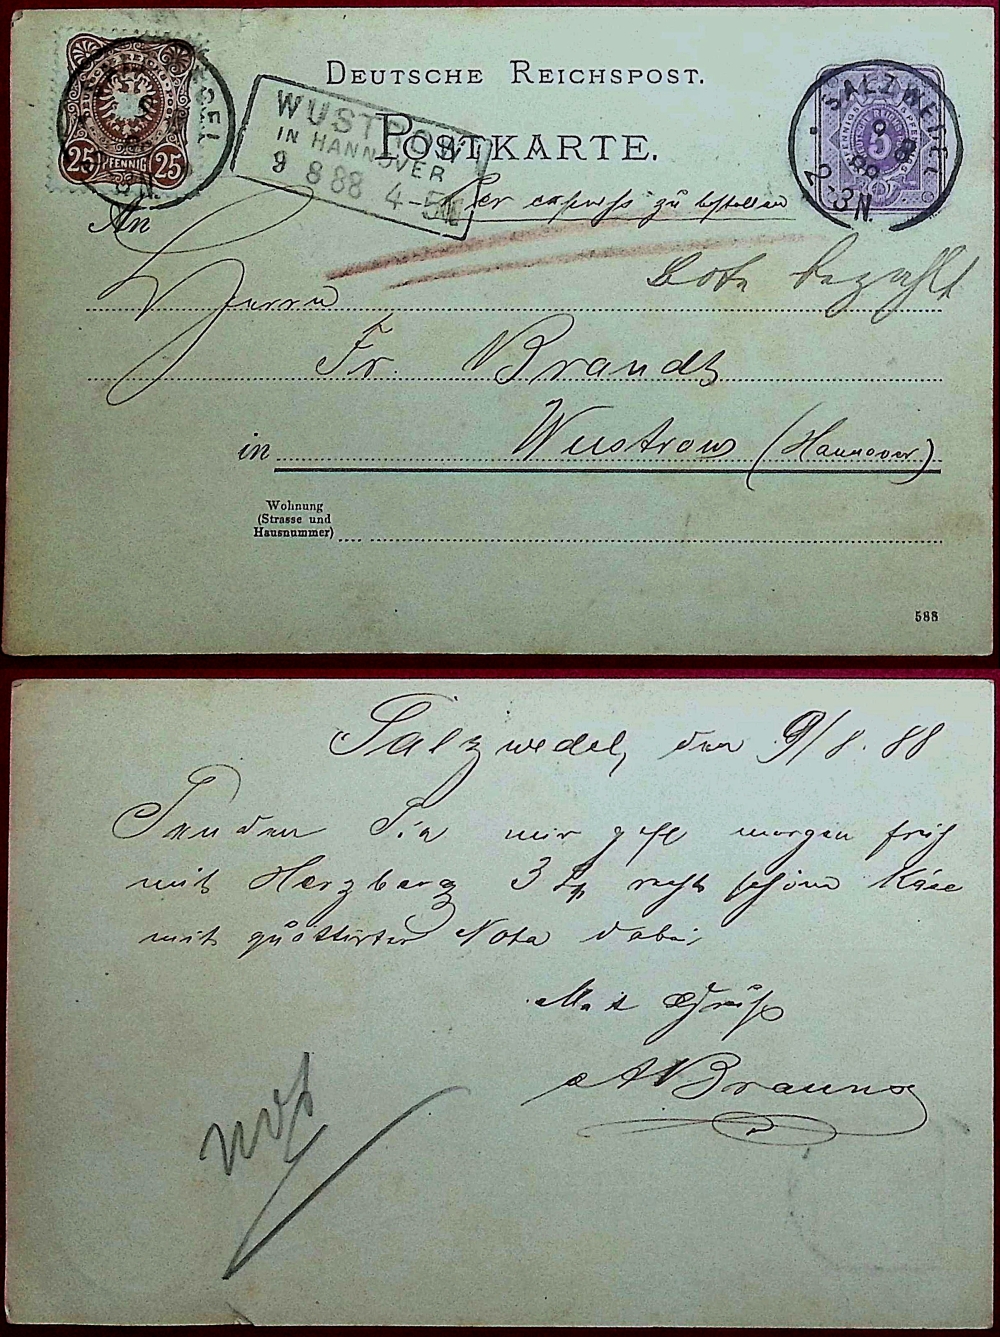 DEUTSCHE REICHSPOST.
POSTKARTE.
25 PFENNIG 25
WUSTROW
IN HANNOVER
9 8 88 4-5N
SALZWEDEL
9
8
88
2-3N.
5
Per expreß zu bestellen
An
Bote bezahlt
Herrn
Fr. Brandt
in Wustrow (Hannover)
Wohnung
(Strasse und
Hausnummer)
588
Salzwedel, den 9/8. 88
Senden Sie mir gefl morgen früh
mit Herzberg 3 recht schöne Käse
mit quittirter Nota dabei
Mit Gruß
A Brauns